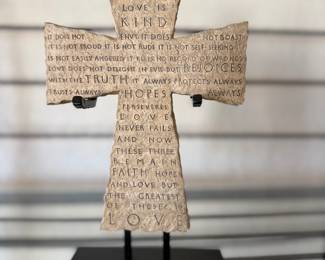 LOVE IS
KIND
IT DOES NOT ENVY IT DOES NOT BOAST
IT IS NOT PROUD IT IS NOT RUDE IT IS NOT SELF-SEEKING
IT IS NOT EASILY ANGERED IT KEEPS NO RECORD OF WRONGS
LOVE DOES NOT DELIGHT IN EVIL BUT REJOICES
WITH THE TRUTH IT ALWAYS PROTECTS ALWAYS
TRUSTS ALWAYS HOPES ALWAYS
PERSEVERES
LOVE
NEVER FAILS
AND NOW
THESE THREE
REMAIN
FAITH HOPE
AND LOVE BUT
THE GREATEST
OF THESE IS
LOVE